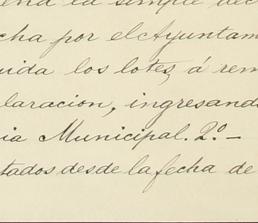 la simple dec
cha por el Ayuntam
uida los lotes, á rem
laracion, ingresand
ia Municipal. 2º—
tados desde la fecha de